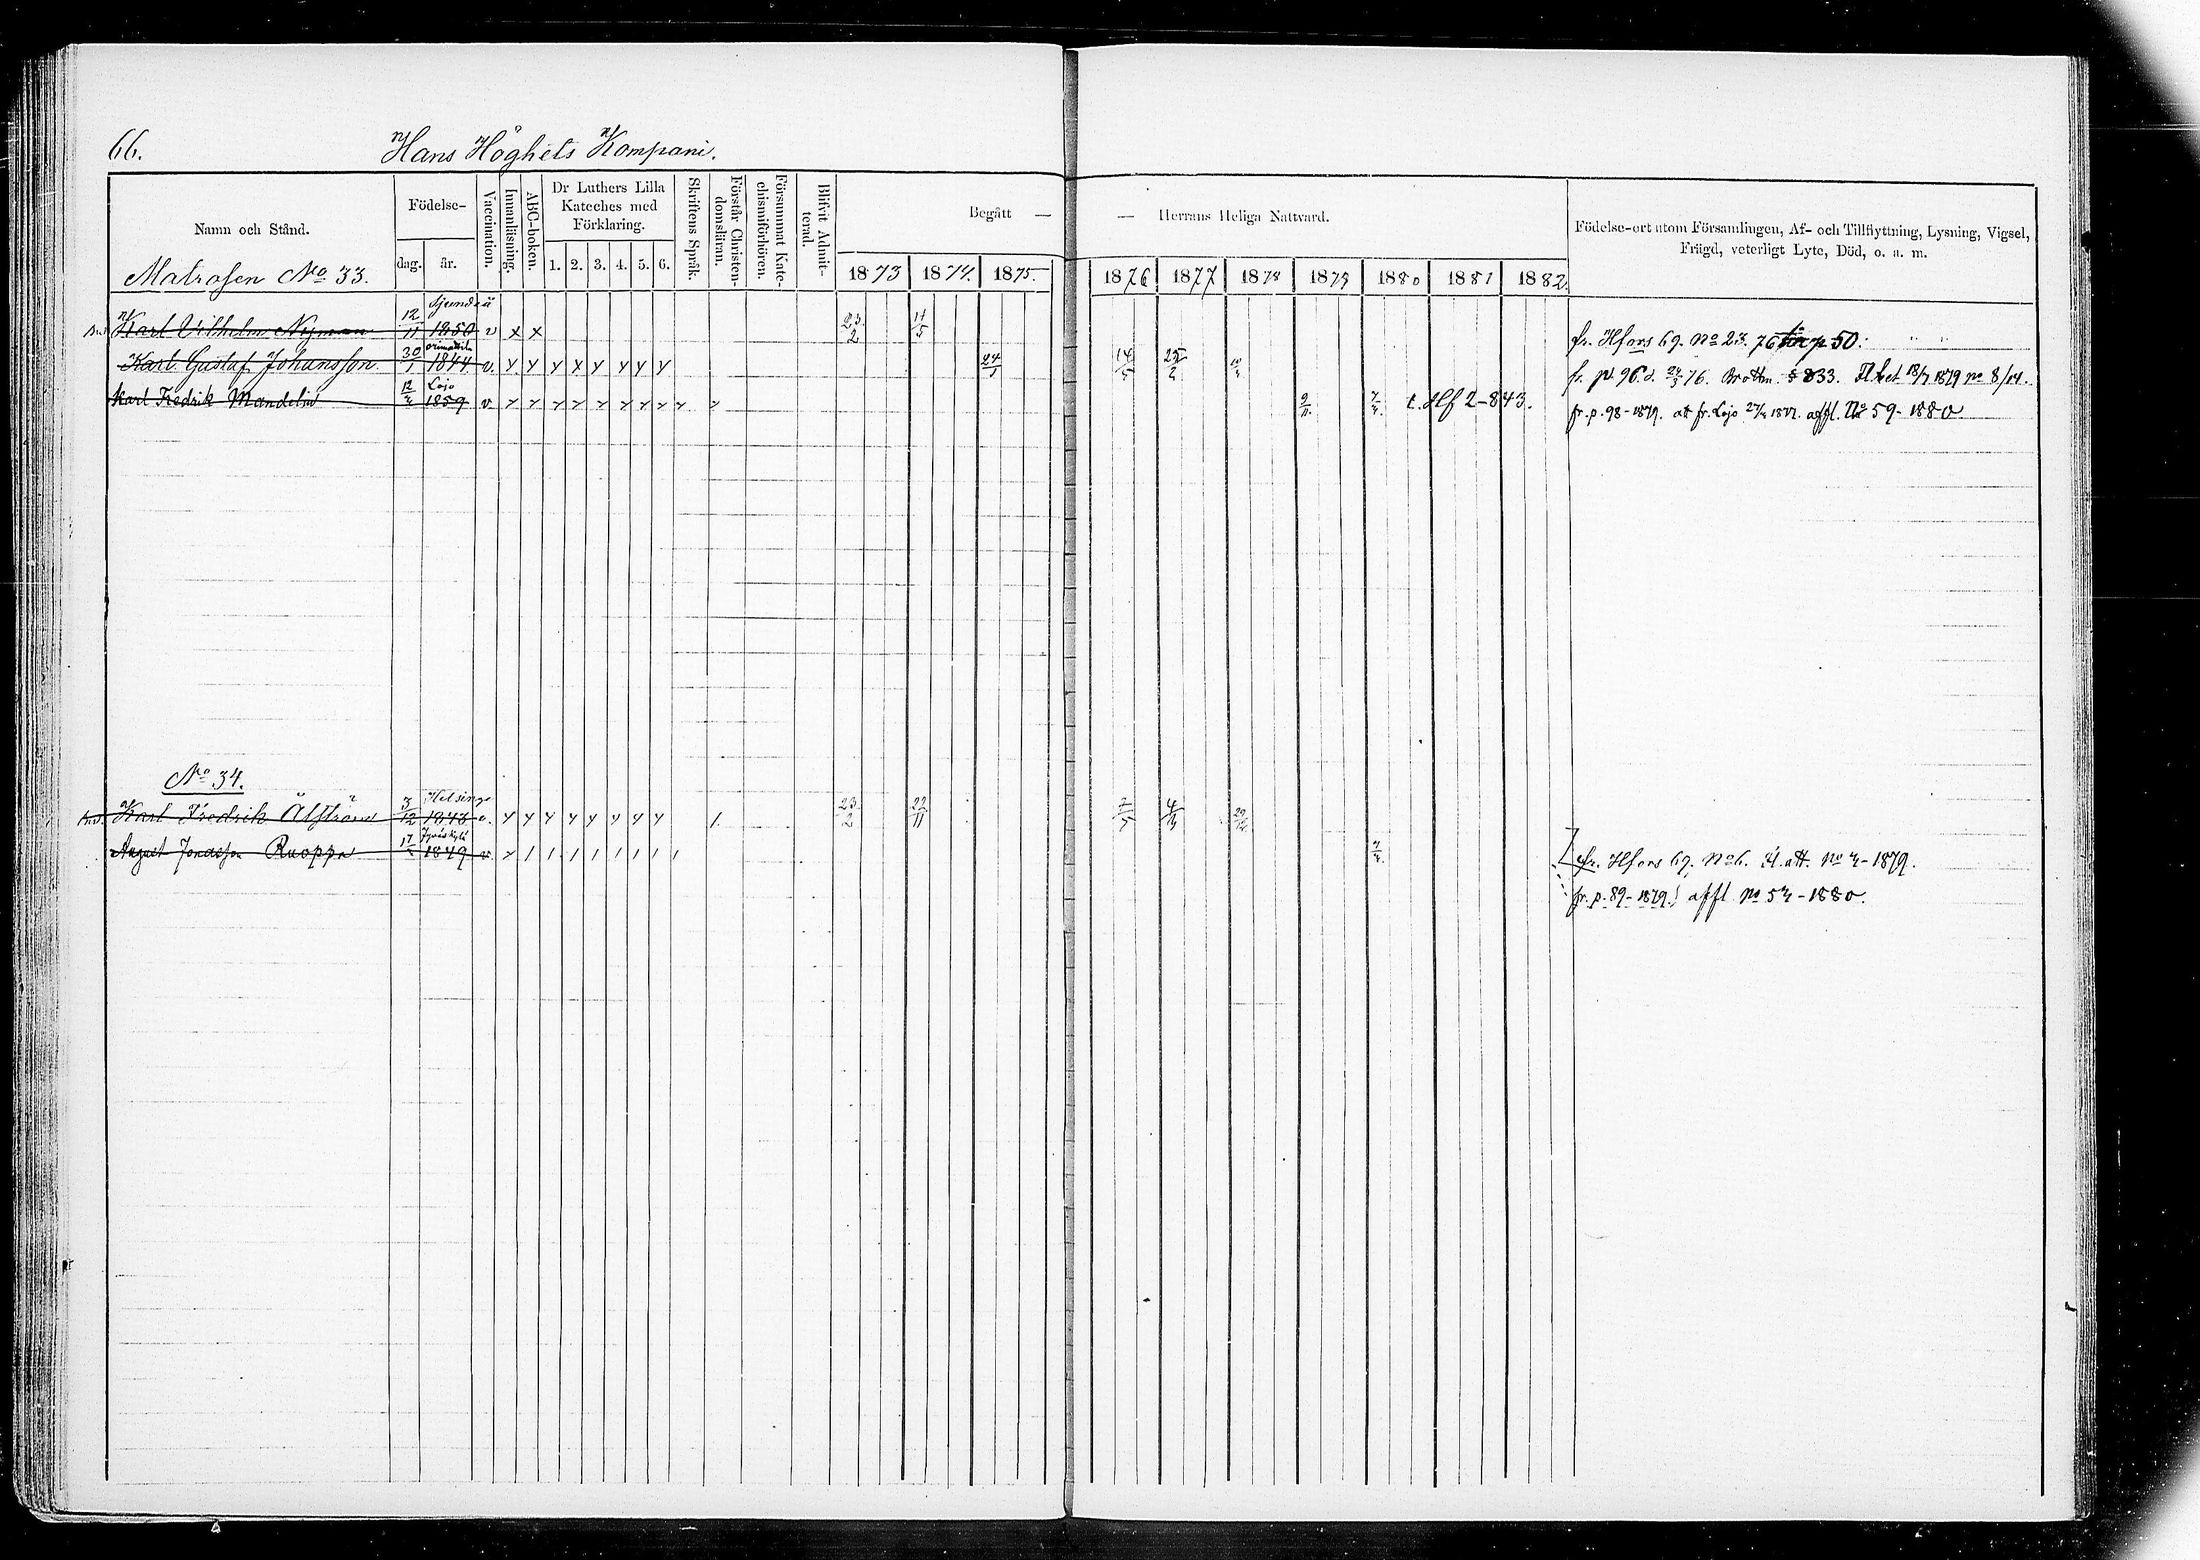 66. Hans Höghets Kompani.
Namn och Stånd.
Födelse-
dag. år.
Vaccination.
Innanläsning.
ABC-boken.
Dr Luthers Lilla
Kateches med
Förklaring.
1. 2. 3. 4. 5. 6.
Skriftens Språk.
Förstår Christen-
domsläran.
Försummat Kate-
chismiförhören.
Blifvit Admit-
terad.
Begått — — Herrans Heliga Nattvard.
1873 1874. 1875. 1876 1877 1878 1879 1880 1881 1882.
Födelse-ort utom Församlingen, Af- och Tillflyttning, Lysning, Vigsel,
Frägd, veterligt Lyte, Död, o. a. m.
Matrosen No 33.
Sjundeå
Karl Vilhelm Nyman 12/11 1850 v x x 23/2 11/5 fr. Hfors 69. No 23. 76 p 50.
Orimattila
Karl Gustaf Johansson 30/1 1844 v. 24/1 14/5 25/2 fr. p. 96. d. 24/3 76. Brottm. § 833. 18/7 1879 no 8/14.
Lojo
Karl Fredrik Mandelin 12/4 1859 v. 9/11 7/4 t. Hf 2-843. fr. p. 98-1879. att fr. Lojo 27/4 1877. affl. No 59-1880
No 34.
Helsinge
Karl Fredrik Ålström 3/12 1843 v. 23/2 22/11 7/5 4/4 29/12 fr. Hfors 69. No 6. Fl. att. No 4-1879.
Jyväskylä
August Jonasson Ruoppa 17/5 1849 v. 7/4 fr. p. 89-1879. affl No 54-1880.